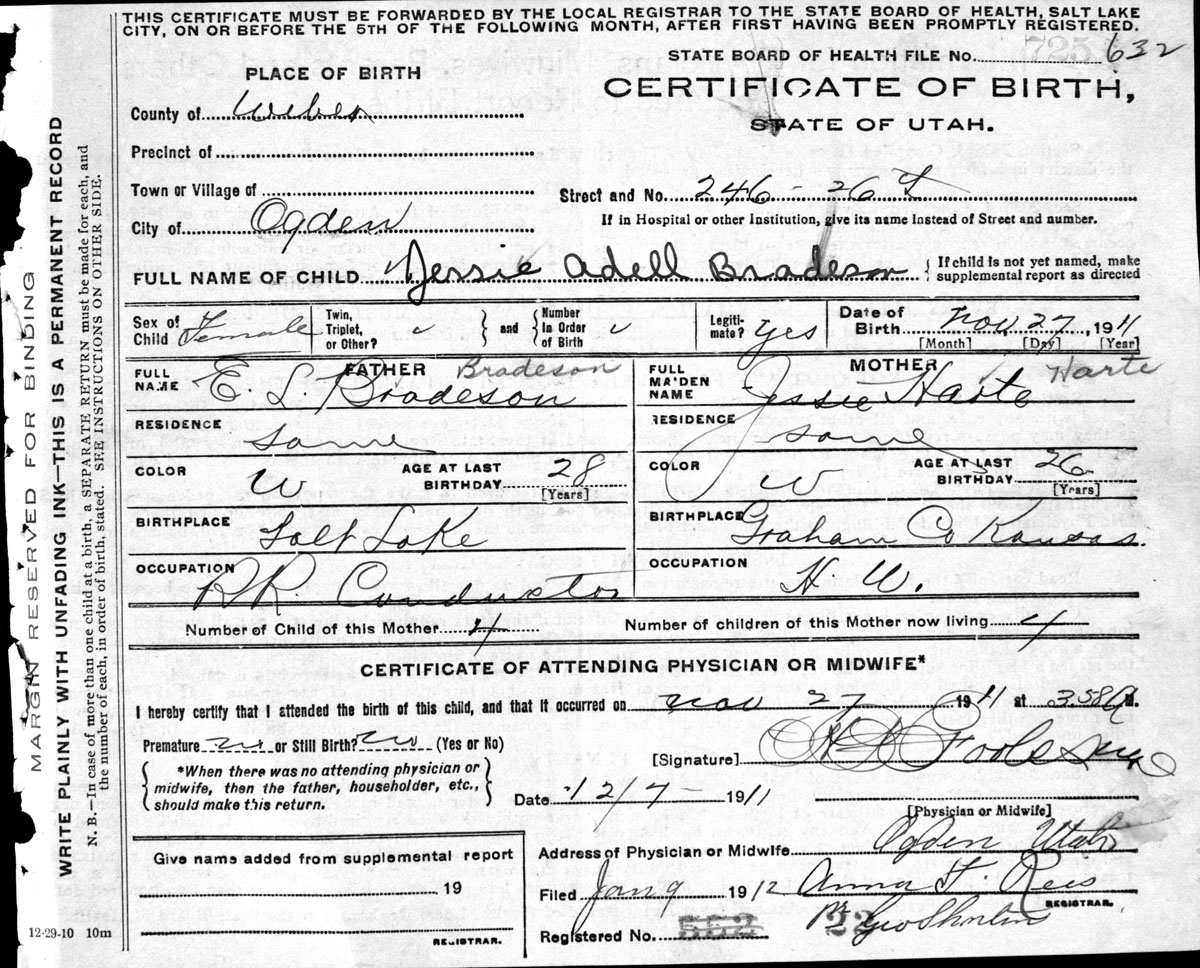 THIS CERTIFICATE MUST BE FORWARDED BY THE LOCAL REGISTRAR TO THE STATE BOARD OF HEALTH, SALT LAKE
CITY, ON OR BEFORE THE 5TH OF THE FOLLOWING MONTH, AFTER FIRST HAVING BEEN PROMPTLY REGISTERED.
MARGIN RESERVED FOR BINDING
WRITE PLAINLY WITH UNFADING INK—THIS IS A PERMANENT RECORD
N. B.—In case of more than one child at a birth, a SEPARATE RETURN must be made for each, and
the number of each, in order of birth, stated. SEE INSTRUCTIONS ON OTHER SIDE.
STATE BOARD OF HEALTH FILE No. 632
CERTIFICATE OF BIRTH,
STATE OF UTAH.
PLACE OF BIRTH
County of Weber
Precinct of
Town or Village of
City of Ogden
Street and No. 246-26 St
If in Hospital or other Institution, give its name instead of Street and number.
FULL NAME OF CHILD Jessie Adell Bradeson { If child is not yet named, make
supplemental report as directed
Sex of Child Female
Twin, Triplet, or Other? } and { Number In Order of Birth
Legitimate? yes
Date of Birth Nov 27, 1911
[Month] [Day] [Year]
FATHER Bradeson
FULL NAME E. L. Bradeson
MOTHER Harte
FULL MAIDEN NAME Jessie Harte
RESIDENCE same
RESIDENCE same
COLOR W AGE AT LAST BIRTHDAY 28 [Years]
COLOR W AGE AT LAST BIRTHDAY 26 [Years]
BIRTHPLACE Salt Lake
BIRTHPLACE Graham Co Kansas.
OCCUPATION RR Conductor
OCCUPATION H W.
Number of Child of this Mother 4
Number of children of this Mother now living 4
CERTIFICATE OF ATTENDING PHYSICIAN OR MIDWIFE*
I hereby certify that I attended the birth of this child, and that it occurred on Nov 27 1911 at 3.58 M.
Premature no or Still Birth? no (Yes or No)
[Signature]
{ *When there was no attending physician or
midwife, then the father, householder, etc.,
should make this return. }
Date 12/7- 1911
[Physician or Midwife]
Give name added from supplemental report
19
REGISTRAR.
Address of Physician or Midwife Ogden Utah
Filed Jan 9 1912 Anna F. Rees
REGISTRAR.
Registered No. 552 22
12-29-10 10m